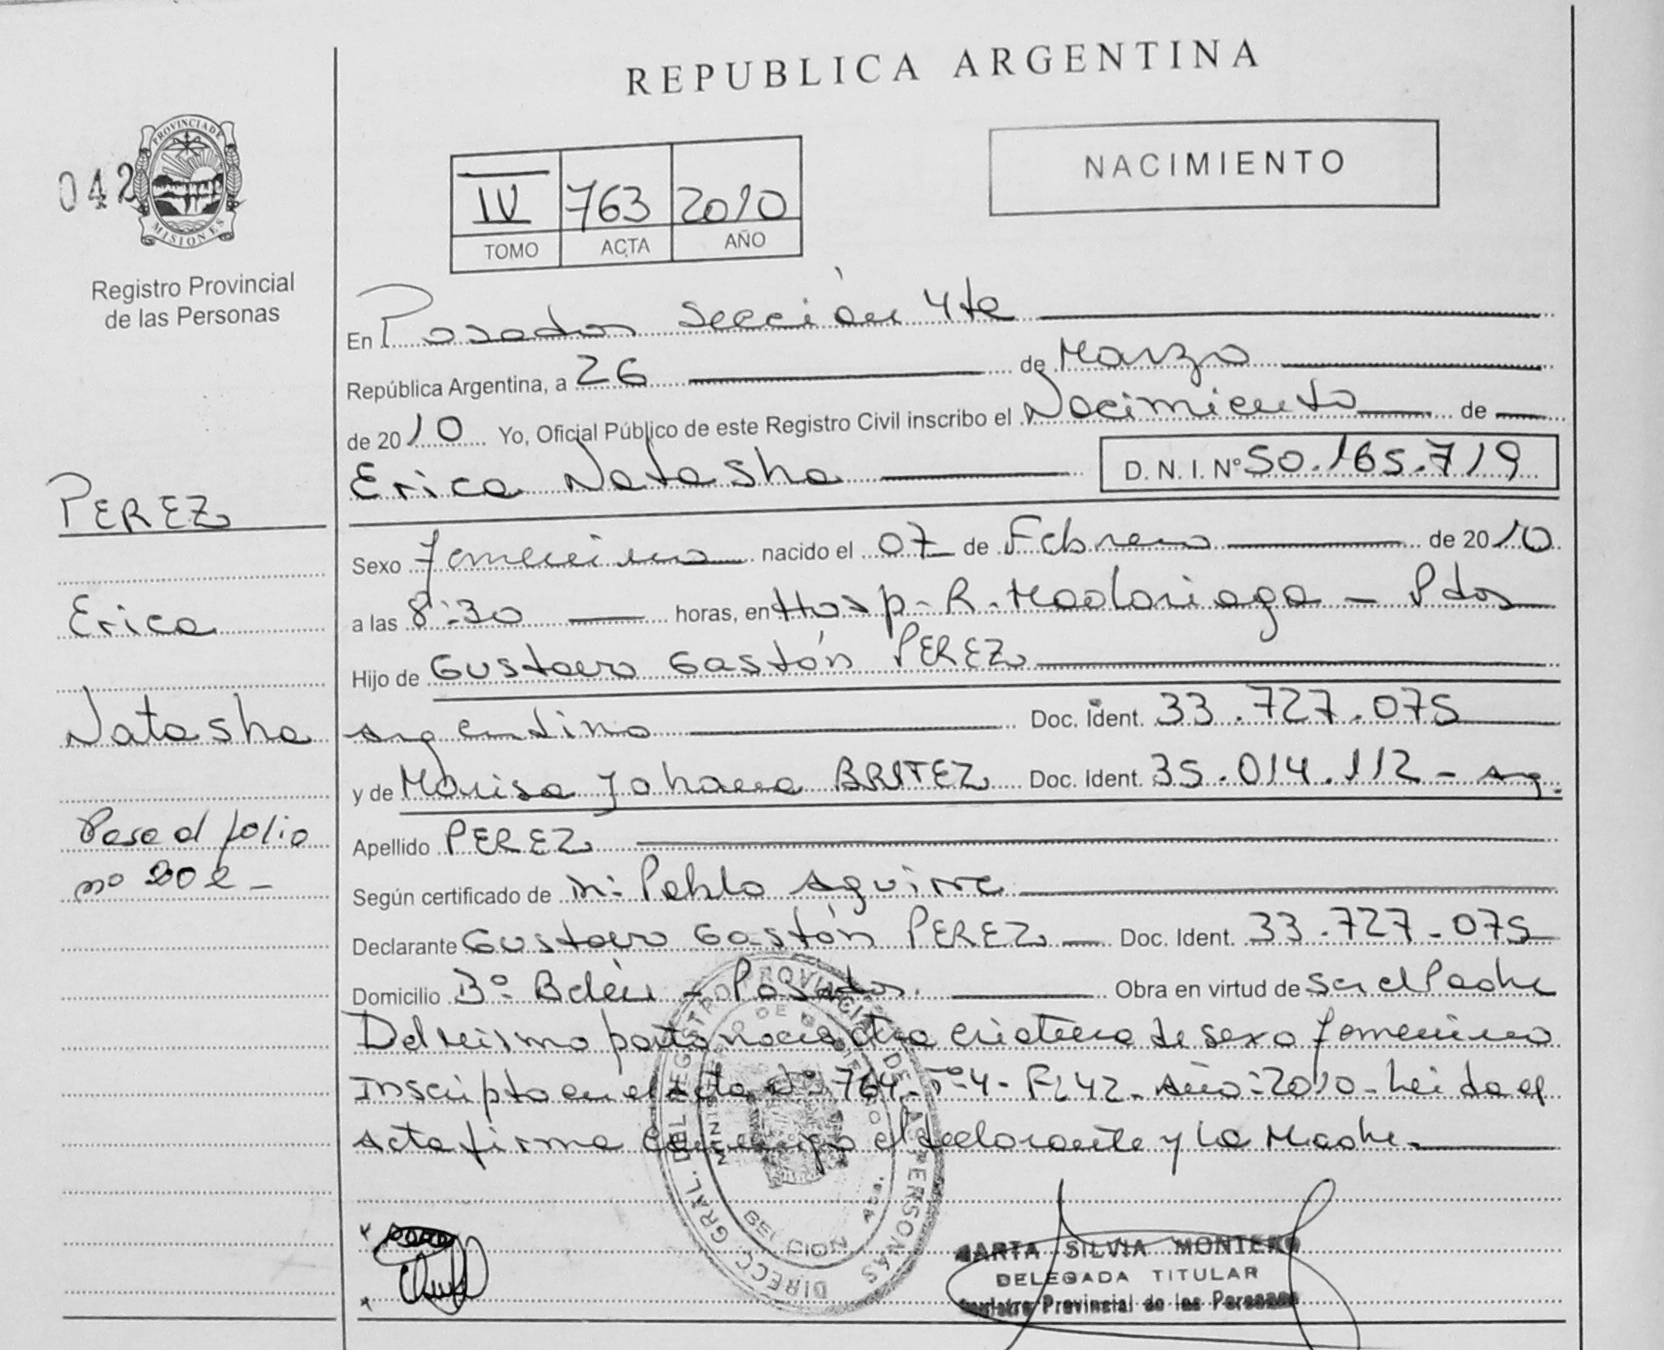 REPUBLICA ARGENTINA
042
PROVINCIA DE
MISIONES
Registro Provincial
de las Personas
IV 763 2010
TOMO ACTA AÑO
NACIMIENTO
En Posadas Sección 4ta
República Argentina, a 26 de Marzo
de 2010 Yo, Oficial Público de este Registro Civil inscribo el Nacimiento de
Erica Natasha D. N. I. Nº 50.165.719
PEREZ
Erica
Natasha
Pase al folio
nº 202 -
Sexo femenino nacido el 07 de Febrero de 2010
a las 8:30 horas, en Hosp- R. Madariaga - Pdas
Hijo de Gustavo Gastón PEREZ
Argentino Doc. Ident. 33.727.075
y de Marisa Johana BRITEZ Doc. Ident. 35.014.112 - Arg.
Apellido PEREZ
Según certificado de Pablo Aguirre
Declarante Gustavo Gastón PEREZ Doc. Ident. 33.727.075
Domicilio Bº Belén - Posadas. Obra en virtud de Ser el Padre
Del mismo parto nacio otra criatura de sexo femenino
Inscripto en el Acta Nº 764- Tº4- Fº 42- Año: 2010- Leida el
Acta firma conmigo el declarante y La Madre.
DIRECC. GRAL. DEL REGISTRO PROVINCIAL DE LAS PERSONAS
MARTA SILVIA MONTERO
DELEGADA TITULAR
Registro Provincial de las Personas